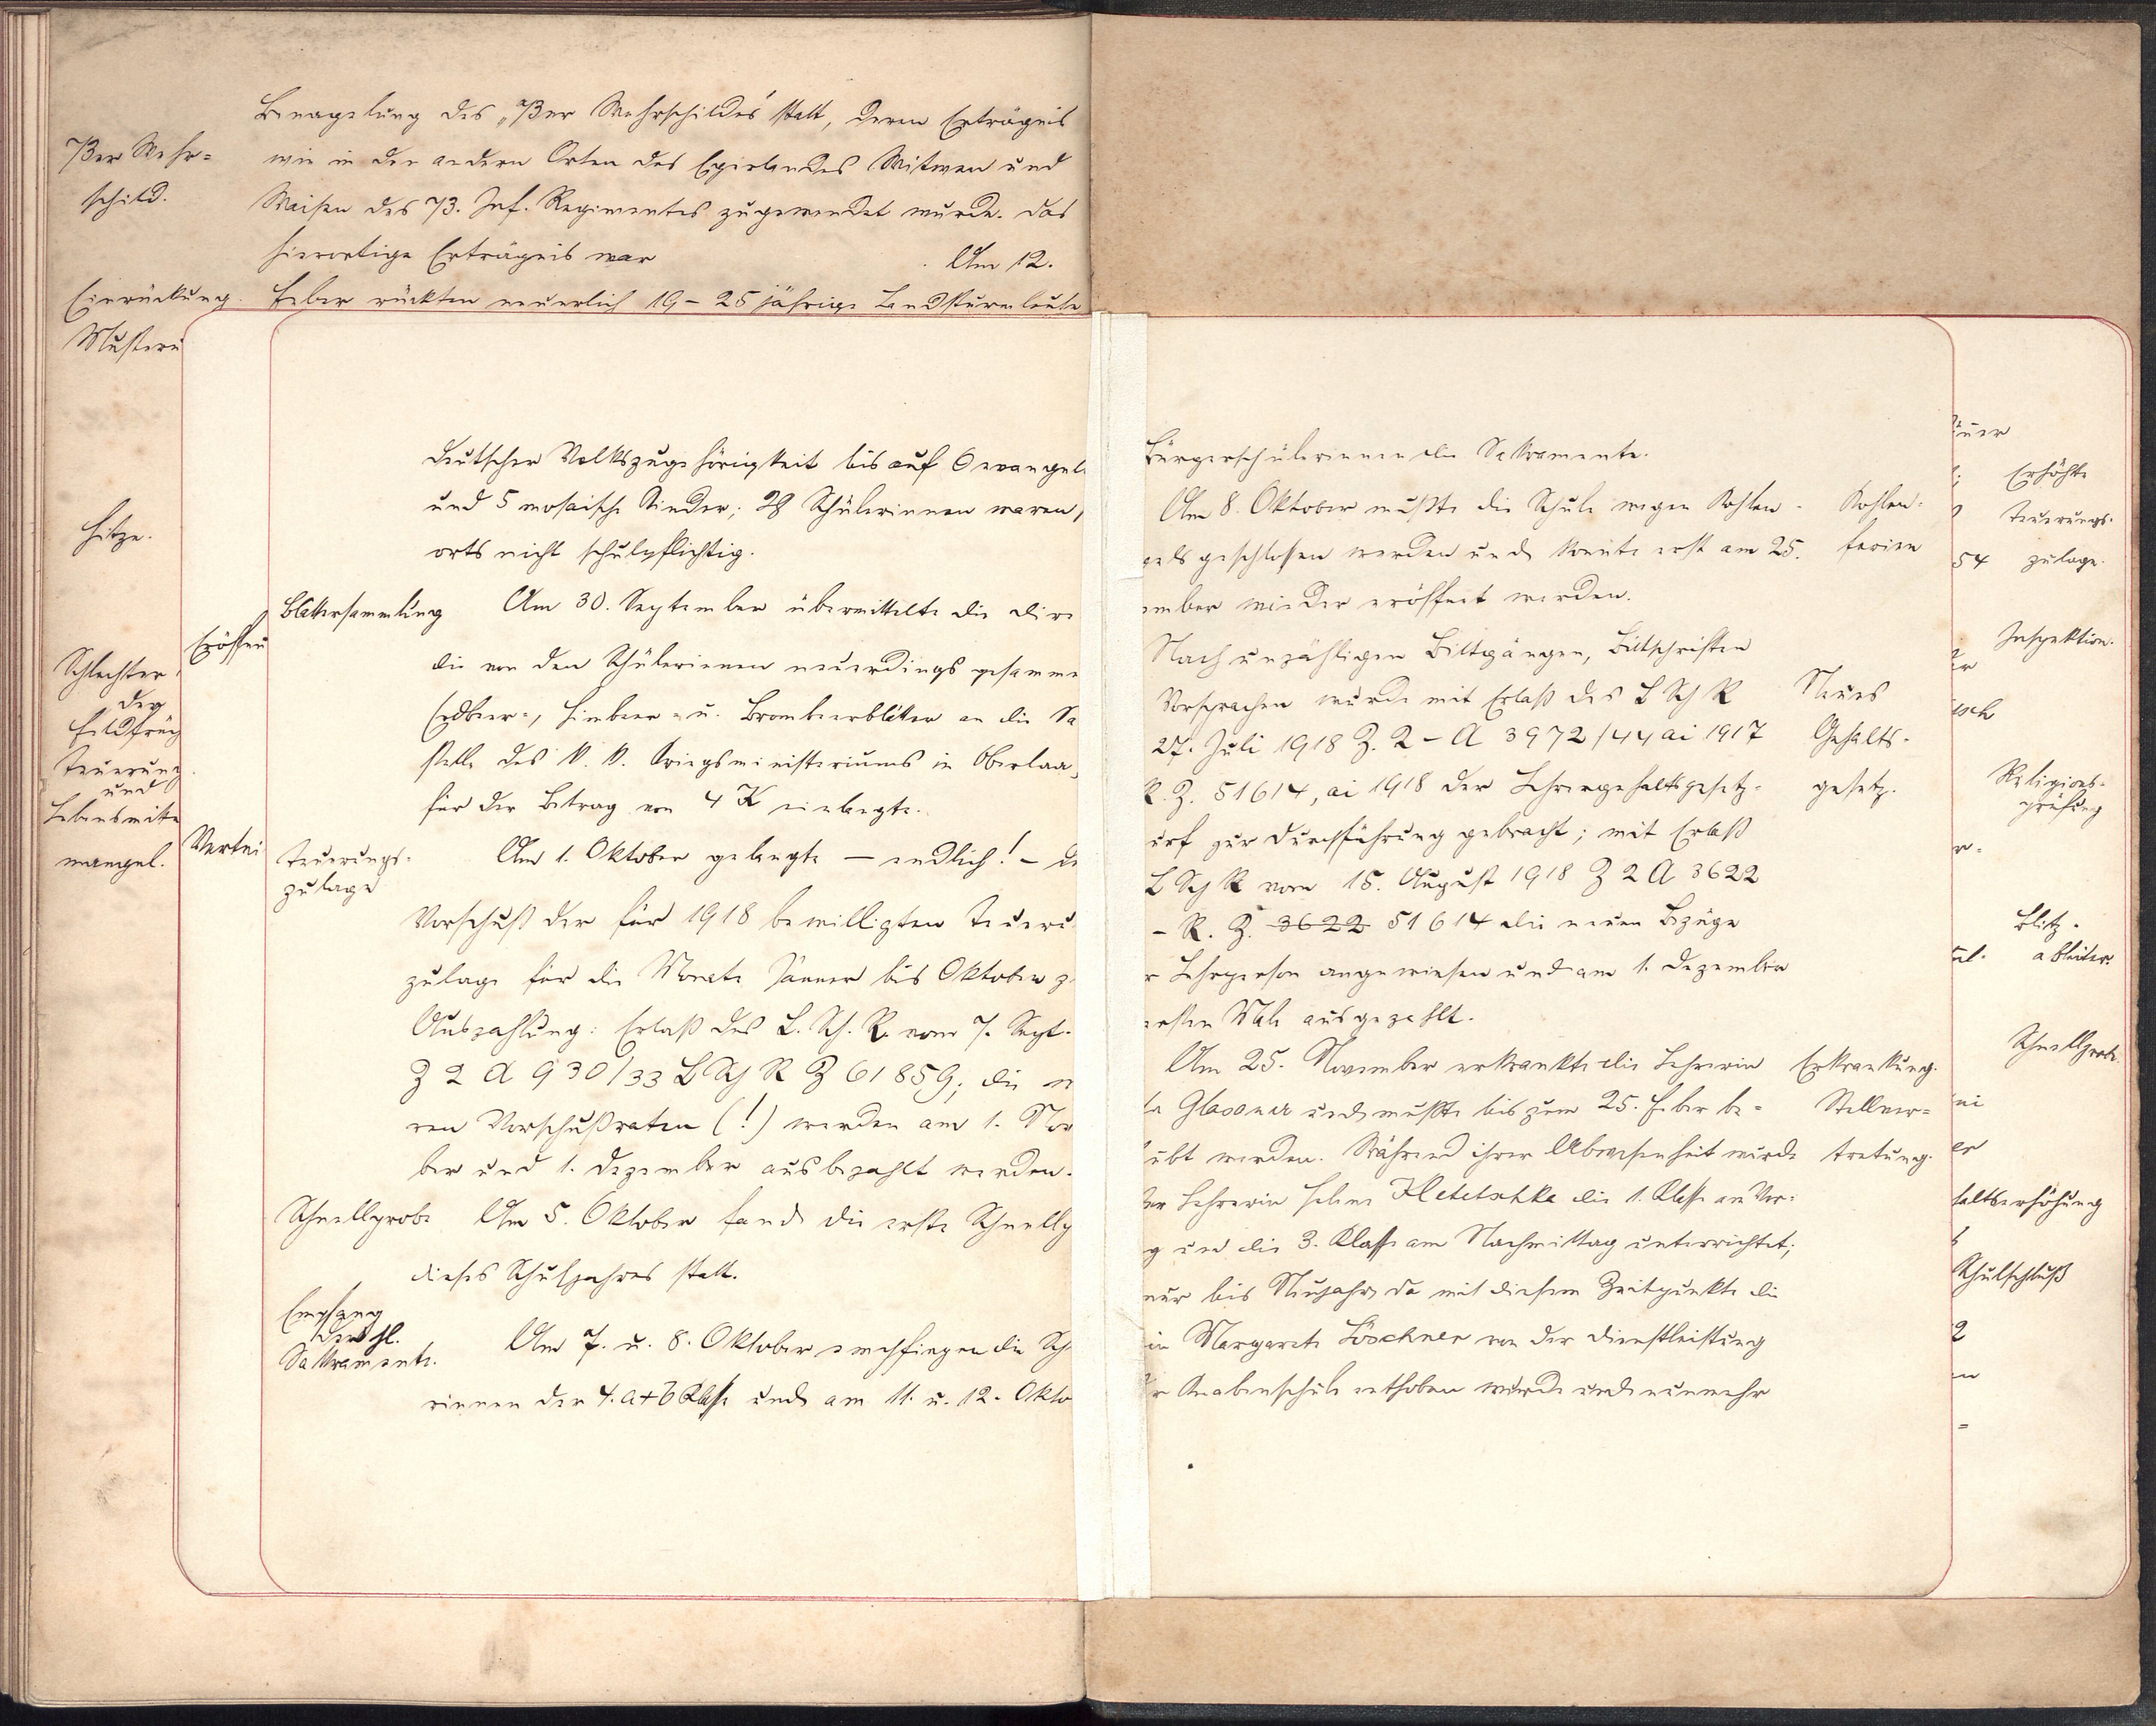 Benagelung des „73er Wehrschildes" statt, deren Erträgnis
73er Wehr=
wie in den andern Orten des Egerlandes Witwen und
schild.
Waisen des 73. Inf. Regimentes zugewendet wurde. Das
hierortige Erträgnis war
Am 12.
Einrückung.
Feber rückten neuerlich 19 - 25 jährige Landsturmleute
Musteru
Hitze.
Schlechter
der
Feldfrüch
Teuerung
und
Lebensmitte
mangel.
Eröffnu
Vertei
deutscher Volkszugehörigkeit bis auf 6 evangel
und 5 mosaische Kinder; 28 Schülerinnen waren
orts nicht schulpflichtig.
Blättersammlung
Am 30. September übermittelte die Dire
die von den Schülerinnen neuerdings gesamme
Erdbeer=, Himbeer= u. Brombeerblätter an die Sa
stelle des k. k. Kriegsministeriums in Oberlaa,
für der Betrag von 4 K einlangte.
Teuerungs=
zulage
Am 1. Oktober gelangte — endlich! — de
Vorschuß der für 1918 bewilligten Teueru
zulage für die Monate Jänner bis Oktober z
Auszahlung: Erlaß des L. Sch. R. vom 7. Sept.
Z 2 A 930/33 L Sch R Z 61859; die
ren Vorschußraten (!) werden am 1. Nov
ber und 1. Dezember ausbezahlt werden.
Schnellprobe
Am 5. Oktober fand die erste Schnellp
dieses Schuljahres statt.
Empfang
der hl.
Sakramente.
Am 7. u. 8. Oktober empfingen die Sch
rinnen der 4. a + b Klasse und am 11. u. 12. Okto
Bürgerschülerinnen die Sakramente.
Am 8. Oktober mußte die Schule wegen Kohlen-
Kohlen=
gels geschlossen werden und konnte erst am 25.
ferien
ember wieder eröffnet werden.
Nach unzähligen Bittgängen, Bittschriften
Vorsprachen wurde mit Erlaß des L Sch R
Neues
27. Juli 1918 Z. 2 - A 3972/44 ai 1917
Gehalts-
R. Z. 51614, ai 1918 der Lehrergehaltsgesetz-
gesetz.
urf zur Durchführung gebracht; mit Erlaß
L Sch R vom 15. August 1918 Z 2 A 3622
- R. Z. 3622 51614 die neuen Bezüge
r Lehrperson angewiesen und am 1. Dezember
ersten Male ausgezahlt.
Am 25. November erkrankte die Lehrerin
Erkrankung.
la Glassner und mußte bis zum 25. Feber be=
Stellver=
ubt werden. Während ihrer Abwesenheit wurde
tretung.
der Lehrerin Helene Hletetschka die 1. Klasse am Vor=
g und die 3. Klasse am Nachmittag unterrichtet;
nur bis Neujahr, da mit diesem Zeitpunkte die
in Margarete Löschner von der Dienstleistung
r Knabenschule enthoben wurde und nunmehr
Erhöhte
Teuerungs-
54
zulage.
Inspektion.
isch
Religions-
prüfung
Blitz-
ableiter.
Schnellprobe
haltserhöhung
Schulschluß
2